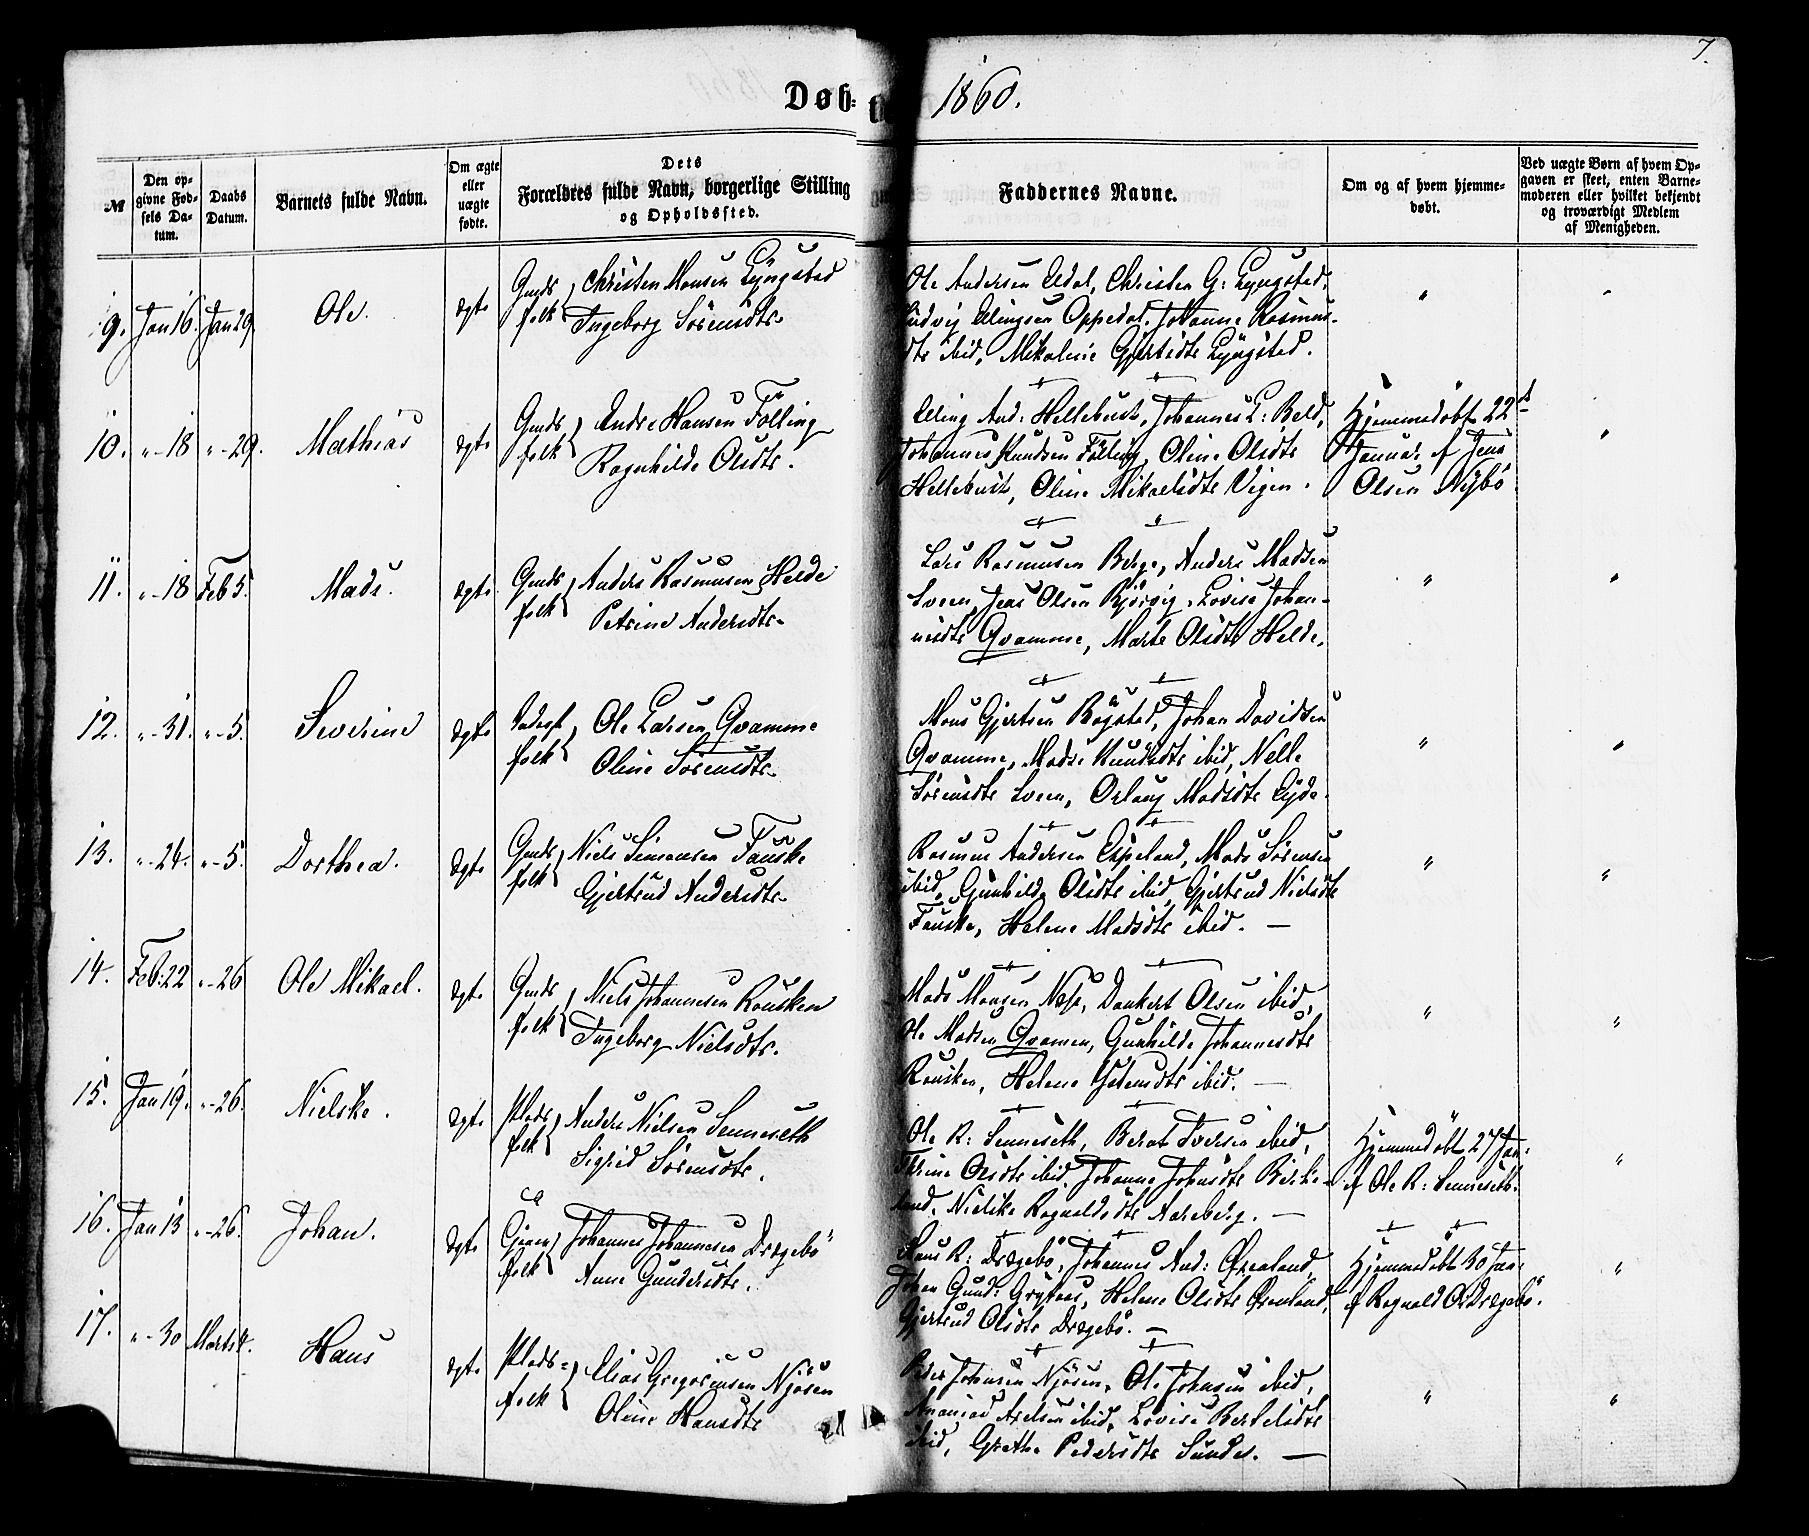 7.
Døbte 1860.
№
Den opgivne Fødsels Datum.
Daabs Datum.
Barnets fulde Navn.
Om ægte eller uægte fødte.
Dets Forældres fulde Navn, borgerlige Stilling og Opholdssted.
Faddernes Navne.
Om og af hvem hjemmedøbt.
Ved uægte Børn af hvem Opgaven er skeet, enten Barnemoderen eller hvilket bekjendt og troværdigt Medlem af Menigheden.
9. Jan 16. Jan 29. Ole. ægte Gmds folk Christen Monsen Lyngstad
Ingeborg Sörensdtr
Ole Andersen Edal, Christen G: Lyngstad,
Ludvig Ellingsen Oppedal, Johanne Rasmus-
dtr ibid, Mikoline Gjertsdtr Lyngstad.
10. "-18 "-29. Mathias ægte Gmds folk Andre Hansen Fölling
Ragnhilde Olsdtr.
Elling And: Hellebust, Johannes L: Beld,
Johannes Knudsen Fölling, Oline Olsdtr
Hellebust, Oline Mikaelsdtr Vigen.
Hjemmedöbt 22
Januar af Jens
Olsen Nybö
11. "-18 Feb 5. Mads. ægte Gmds folk Anders Rasmusen Helde
Petrine Andersdtr
Lars Rasmusen Berge, Anders Madsen
Sveen, Jens Olsen Bjórvig, Lovise Johan-
nesdtr Qvamme, Marte Olsdtr Helde.
12. "-31. "-5. Severine ægte folk Ole Larsen Qvamme
Oline Sörensdtr
Mons Gjertsen Bögstad, Johan Davidsen
Qvamme, Madsi Knudsdtr ibid, Nelle
Sörensdtr Sveen, Orlaug Madsdtr Eyde.
13. "-24. "-5. Dorthea. ægte Gmds folk Niels Simonsen Fauske
Gjertrud Andersdtr
Rasmus Andersen Espeland, Mads Sörensen
ibid, Gunhilde Olsdtr ibid, Gjertrud Nielsdtr
Fauske, Helene Madsdtr ibid. —
14. Feb. 22 "-26 Ole Mikael. ægte Gmds folk Niels Johannesen Rousken
Ingeborg Nielsdtr.
Mads Monsen Næss, Dankert Olsen ibid,
Ole Madsen Qvamen, Gunhilde Johannesdtr
Rousken, Helene ibid. —
15. Jan 19. "-26. Nielske. ægte Plads folk Anders Nielsen Senneseth
Sigrid Sörensdtr.
Ole R: Senneseth, Berat Iversen ibid,
Thrine Olsdtr ibid, Johanne Johnsdtr Birke-
land, Nielske Ragnaldsdtr Aareberg. —
Hjemmedöbt 27 Jan:
af Ole R: Senneseth.
16. Jan 13 "-26. Johan. ægte folk Johannes Johannesen Drægebö
Anne Gundersdtr.
Hans R: Drægebö, Johannes And: Öreland,
Johan Gund: Grytens, Helene Olsdtr Öreland,
Gjertrud Olsdtr Drægebö. —
Hjemmedöbt 30 Jan:
af Ragnald O: Drægebö.
17. "-30 Marts 4. Hans ægte Plads- folk Elias Gregoriusen Njösen
Oline Hansdtr
Peder Johnsen Njösen, Ole Johnsen ibid,
Ananias Axelsen ibid, Lovise Bertelsdtr
ibid, Grethe Pedersdtr Sunde. —